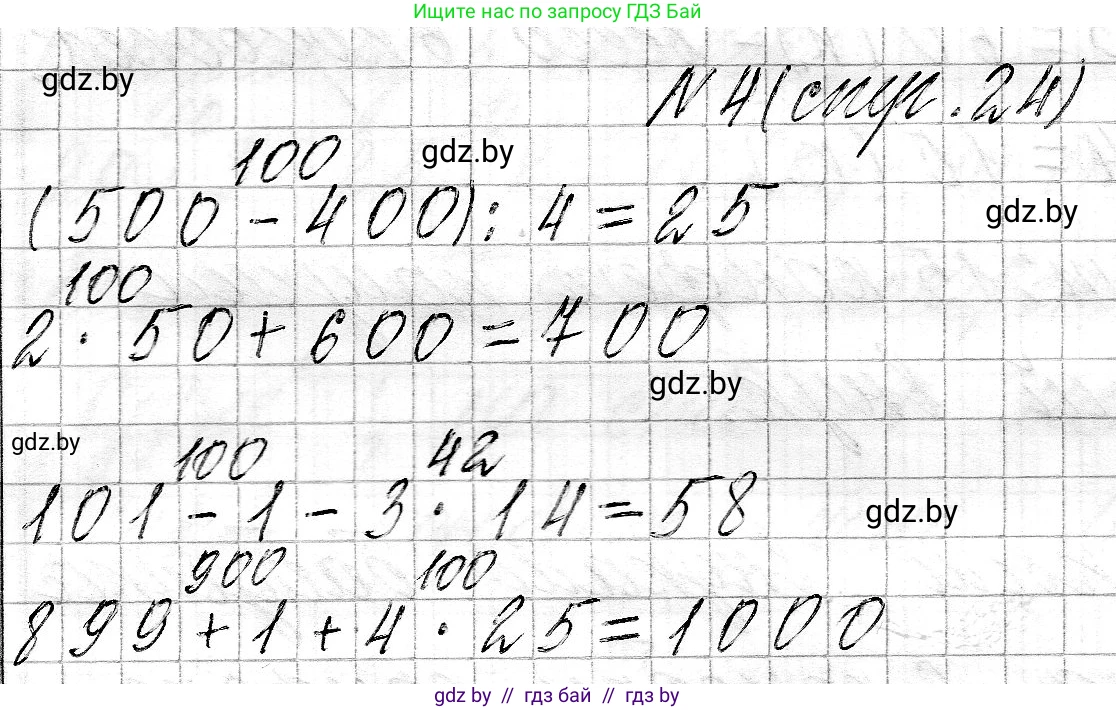 Ищите нас по запросу ГДЗ Бай
gdz.by
N 4 (стр. 24)
100
gdz.by
(500 - 400) : 4 = 25
gdz.by
100
2 · 50 + 600 = 700
gdz.by
gdz.by
100 42
101 - 1 - 3 · 14 = 58
gdz.by
900 100
899 + 1 + 4 · 25 = 1000
gdz.by // гдз бай // гдз by